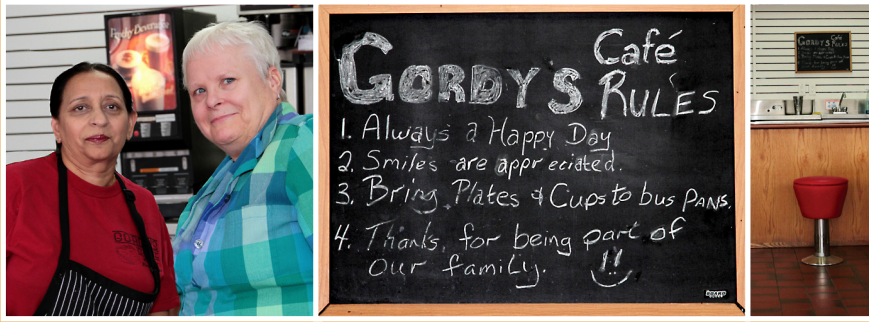 Gordys Café
Rules
1. Always a Happy Day
2. Smiles are appreciated.
3. Bring Plates & Cups to bus Pans.
4. Thanks, for being part of
our family.